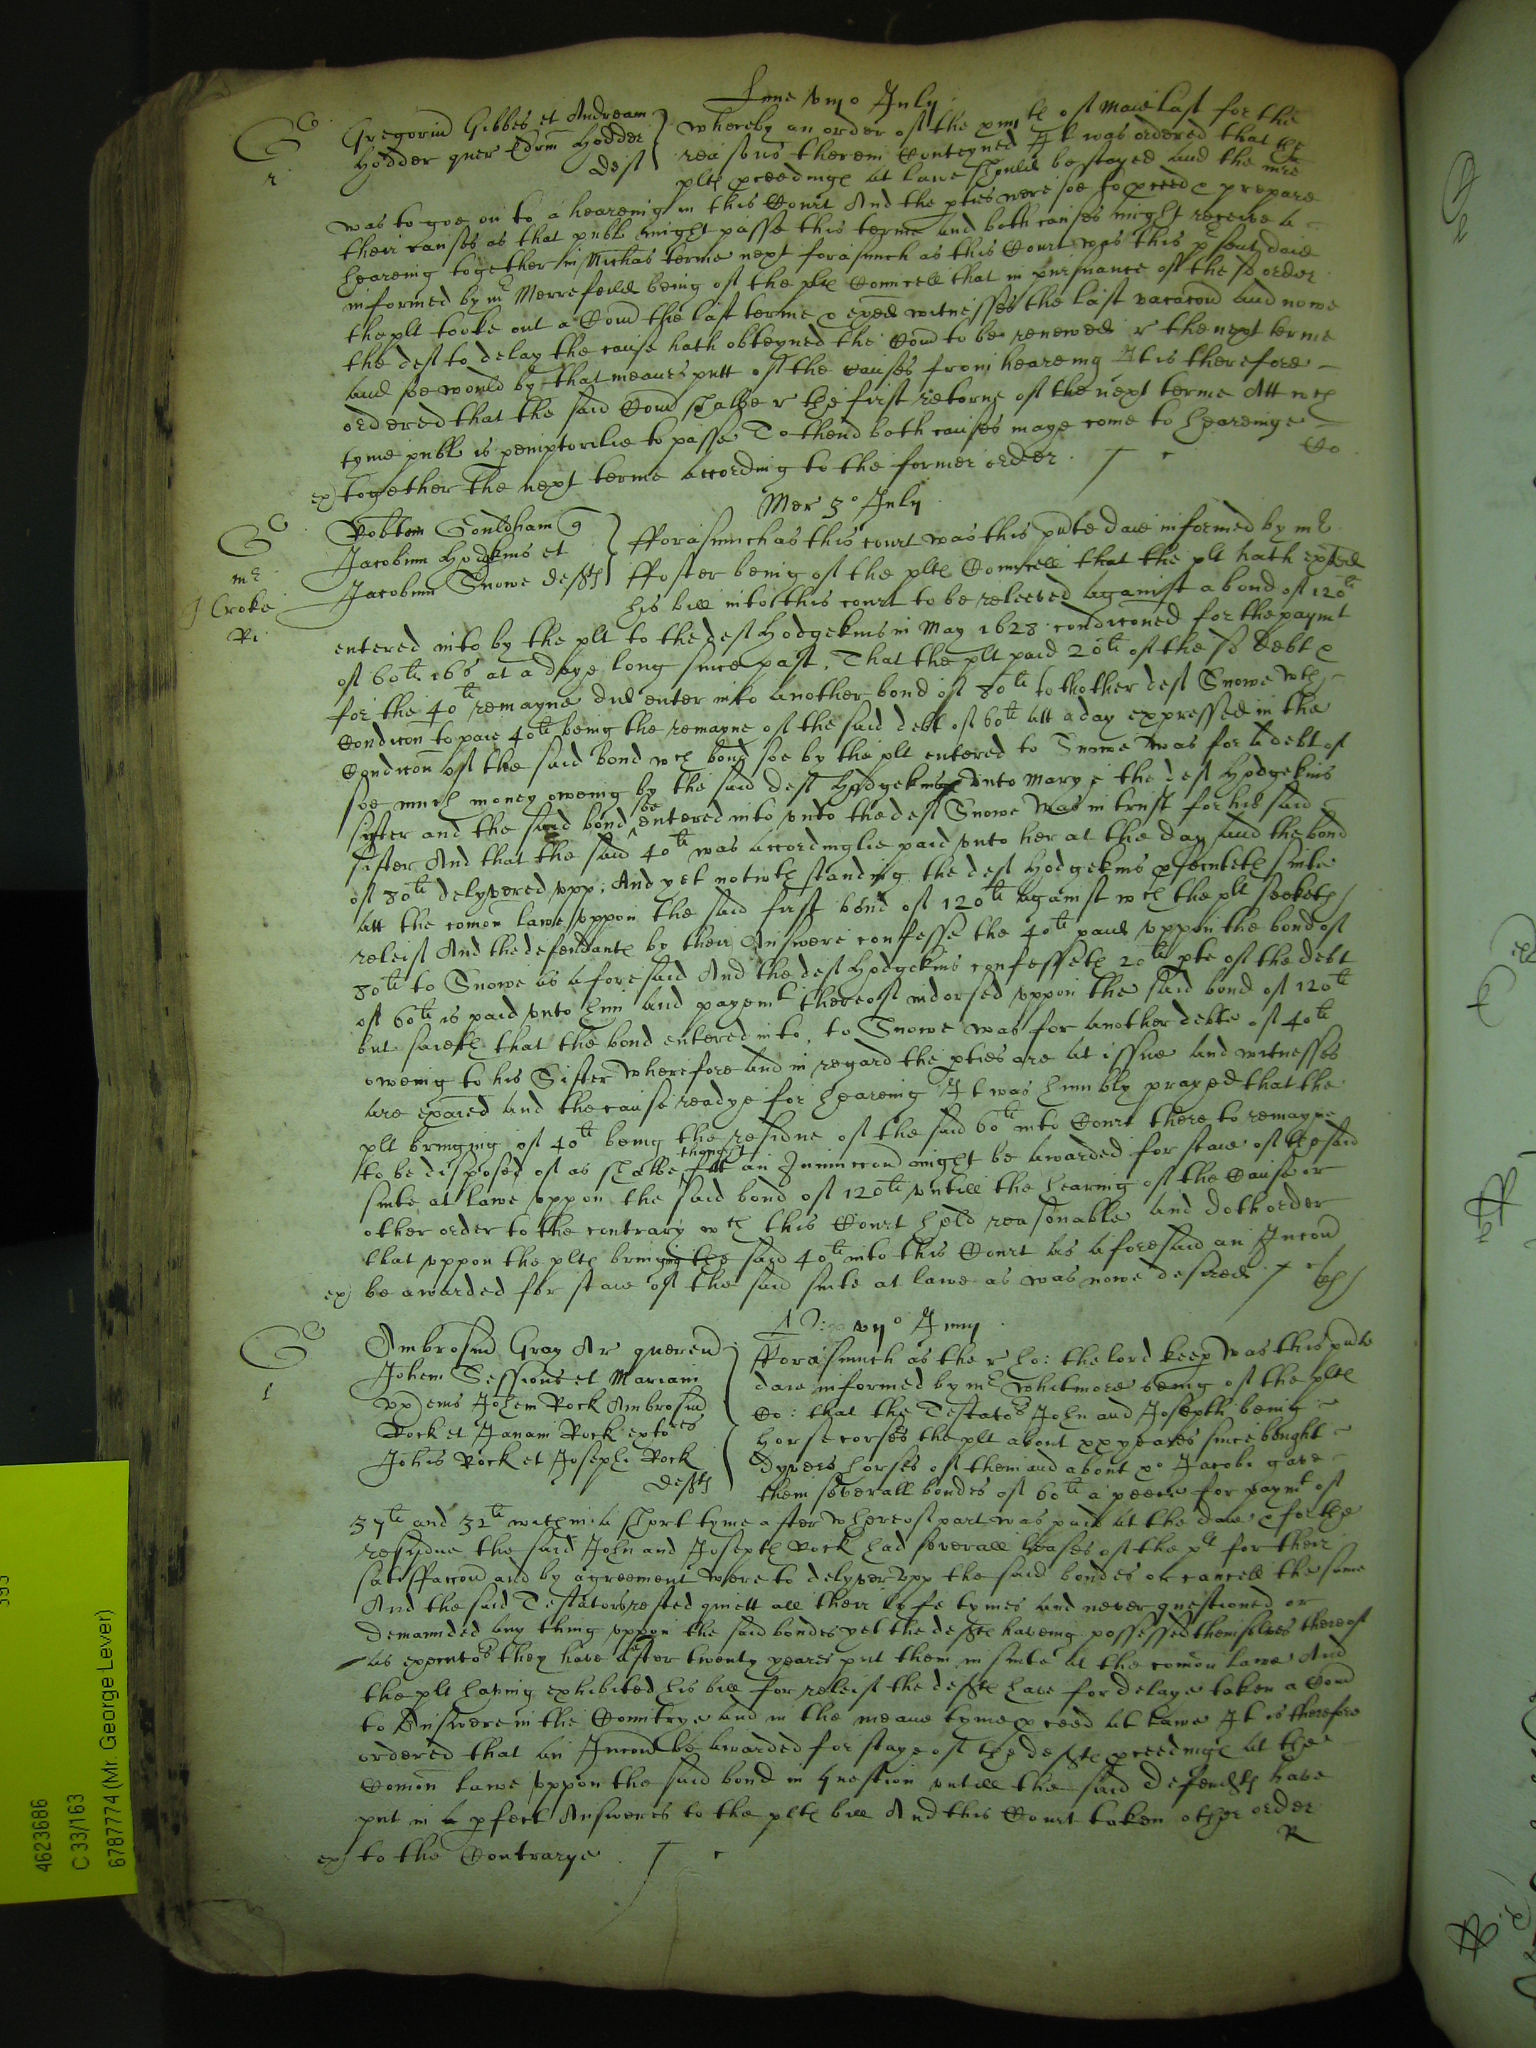 Lune viijo July
Gregoriu Gibbes et Andream
Hodder quer Edrm Hodder
deft
Whereby an order of the xiiijth of Maie last for the
reasons therein Conteyned It was ordered that the
pltes pceedinge at lawe should be stayed and the
was to goe on to a heareing in this Court And the pties were soe to pceed & prepare
their causes as that publ might passe this terme and both causes might receive a
heareing together in Michas terme next forasmuch as this Court was this psent daie
informed by mr Merrefeild being of the pltes Councell that in pursuance of the sd order
the plt tooke out a Comd the last terme & exed witnesses the last vacacond and nowe
the deft to delay the cause hath obteyned the Comd to be renewed r the next terme
and soe would by that meanes putt of the causes from heareing It is therefore
ordered that the said Comd shalbe r the first retorne of the next terme Att wch
tyme publ is pemptorilie to passe To thend both causes maye come to heareinge
ex) together the next terme according to the former order.
Co
Mer 3o July
Robtm Gouldham q
Jacobum Hodgekins et
Jacobum Snowe defts
mr
J Croke
Ri
fforasmuch as this court was this pnte daie informed by mr
ffoster being of the pltes Councell that the plt hath exted
his bill into this court to be releeved against a bond of 120li
entered into by the plt to the deft Hodgekins in May 1628 condiconed for the paymt
of 60li 16s at a daye long since past. That the plt paid 20li of the sd debt &
for the 40li remayne did enter into another bond of 80li to thother deft Snowe wth
Condicon to paie 40li being the remayne of the said debt of 60li att a day expressed in the
Condicon of the said bond wch bond soe by the plt entered to Snowe was for a debt of
soe much money oweing by the said deft Hodgekins unto Mary the deft Hodgekins
sister and the said bond soe entered into unto the deft Snowe was in trust for his said
sister And that the said 40li was accordinglie paid unto her at the day and the bond
of 80li delyvered upp: And yet notwthstanding the deft Hodgekins psecuteth suite
att the comon lawe uppon the said first bond of 120li against wch the plt seeketh
releif And the defendantes by their Answere confesse the 40li paid uppon the bond of
80li to Snowe as aforesaid And the deft Hodgekins confesseth 20li pte of the debt
of 60li is paid unto him and payemt thereof indorsed uppon the said bond of 120li
but saieth that the bond entered into, to Snowe was for another debte of 40li
oweing to his Sister wherefore and in regard the pties are at issue and witnesses
are exaied and the cause readye for heareing It was humbly prayed that the
plt bringing of 40li being the residue of the said 60li into Court there to remayne
to be disposed of as shalbe thought fitt an Iniunccond might be awarded for staie of the said
suite at lawe uppon the said bond of 120li untill the hearing of the Cause or
other order to the contrary wch this Court held reasonable and doth order
that uppon the pltes bringing the said 40li into this Court as aforesaid an Incond
ex) be awarded for staie of the said suite at lawe as was nowe desired
vijo Juny
Ambrosiu Gray Ar querend
Johem Sessions et Mariam
ux) eius Johem Rock Ambrosiu
Rock et Janam Rock extores
Johis Rock et Josephi Rock
defts
fforasmuch as the r ho: the lord keep was this pnte
daie informed by mr Whitmore being of the pltes
Co: that the Testators John and Joseph being
horsecorsers the plt about xx yeares since bought
dyvers horses of them and about xo Jacobi gave
them severall bondes of 60li a peece for paymt of
37li and 32li within a short tyme after whereof part was paid at the daie & for the
residue the said John and Joseph Rock had severall leases of the plt for their
satisfaccond and by agreement were to delyver upp the said bondes or cancell the same
And the said Testators rested quiett all their life tymes and never questioned or
demannded any thing uppon the said bondes yet the defts haveing possessed themselves thereof
as executors they have after twenty yeares put them in suite at the comon lawe And
the plt having exhibited his bill for releif the defts have for delaye taken a Comd
to Answere in the Countrye and in the meane tyme pceed at lawe It is therefore
ordered that an Incond be awarded for staye of the defts pceedinge at the
Comon lawe uppon the said bond in question untill the said Defendts have
put in a pfect Answeres to the pltes bill And this Court taken other order
ex) to the Contrarye
R
4623686
C 33/163
6787774 (Mr. George Lever)